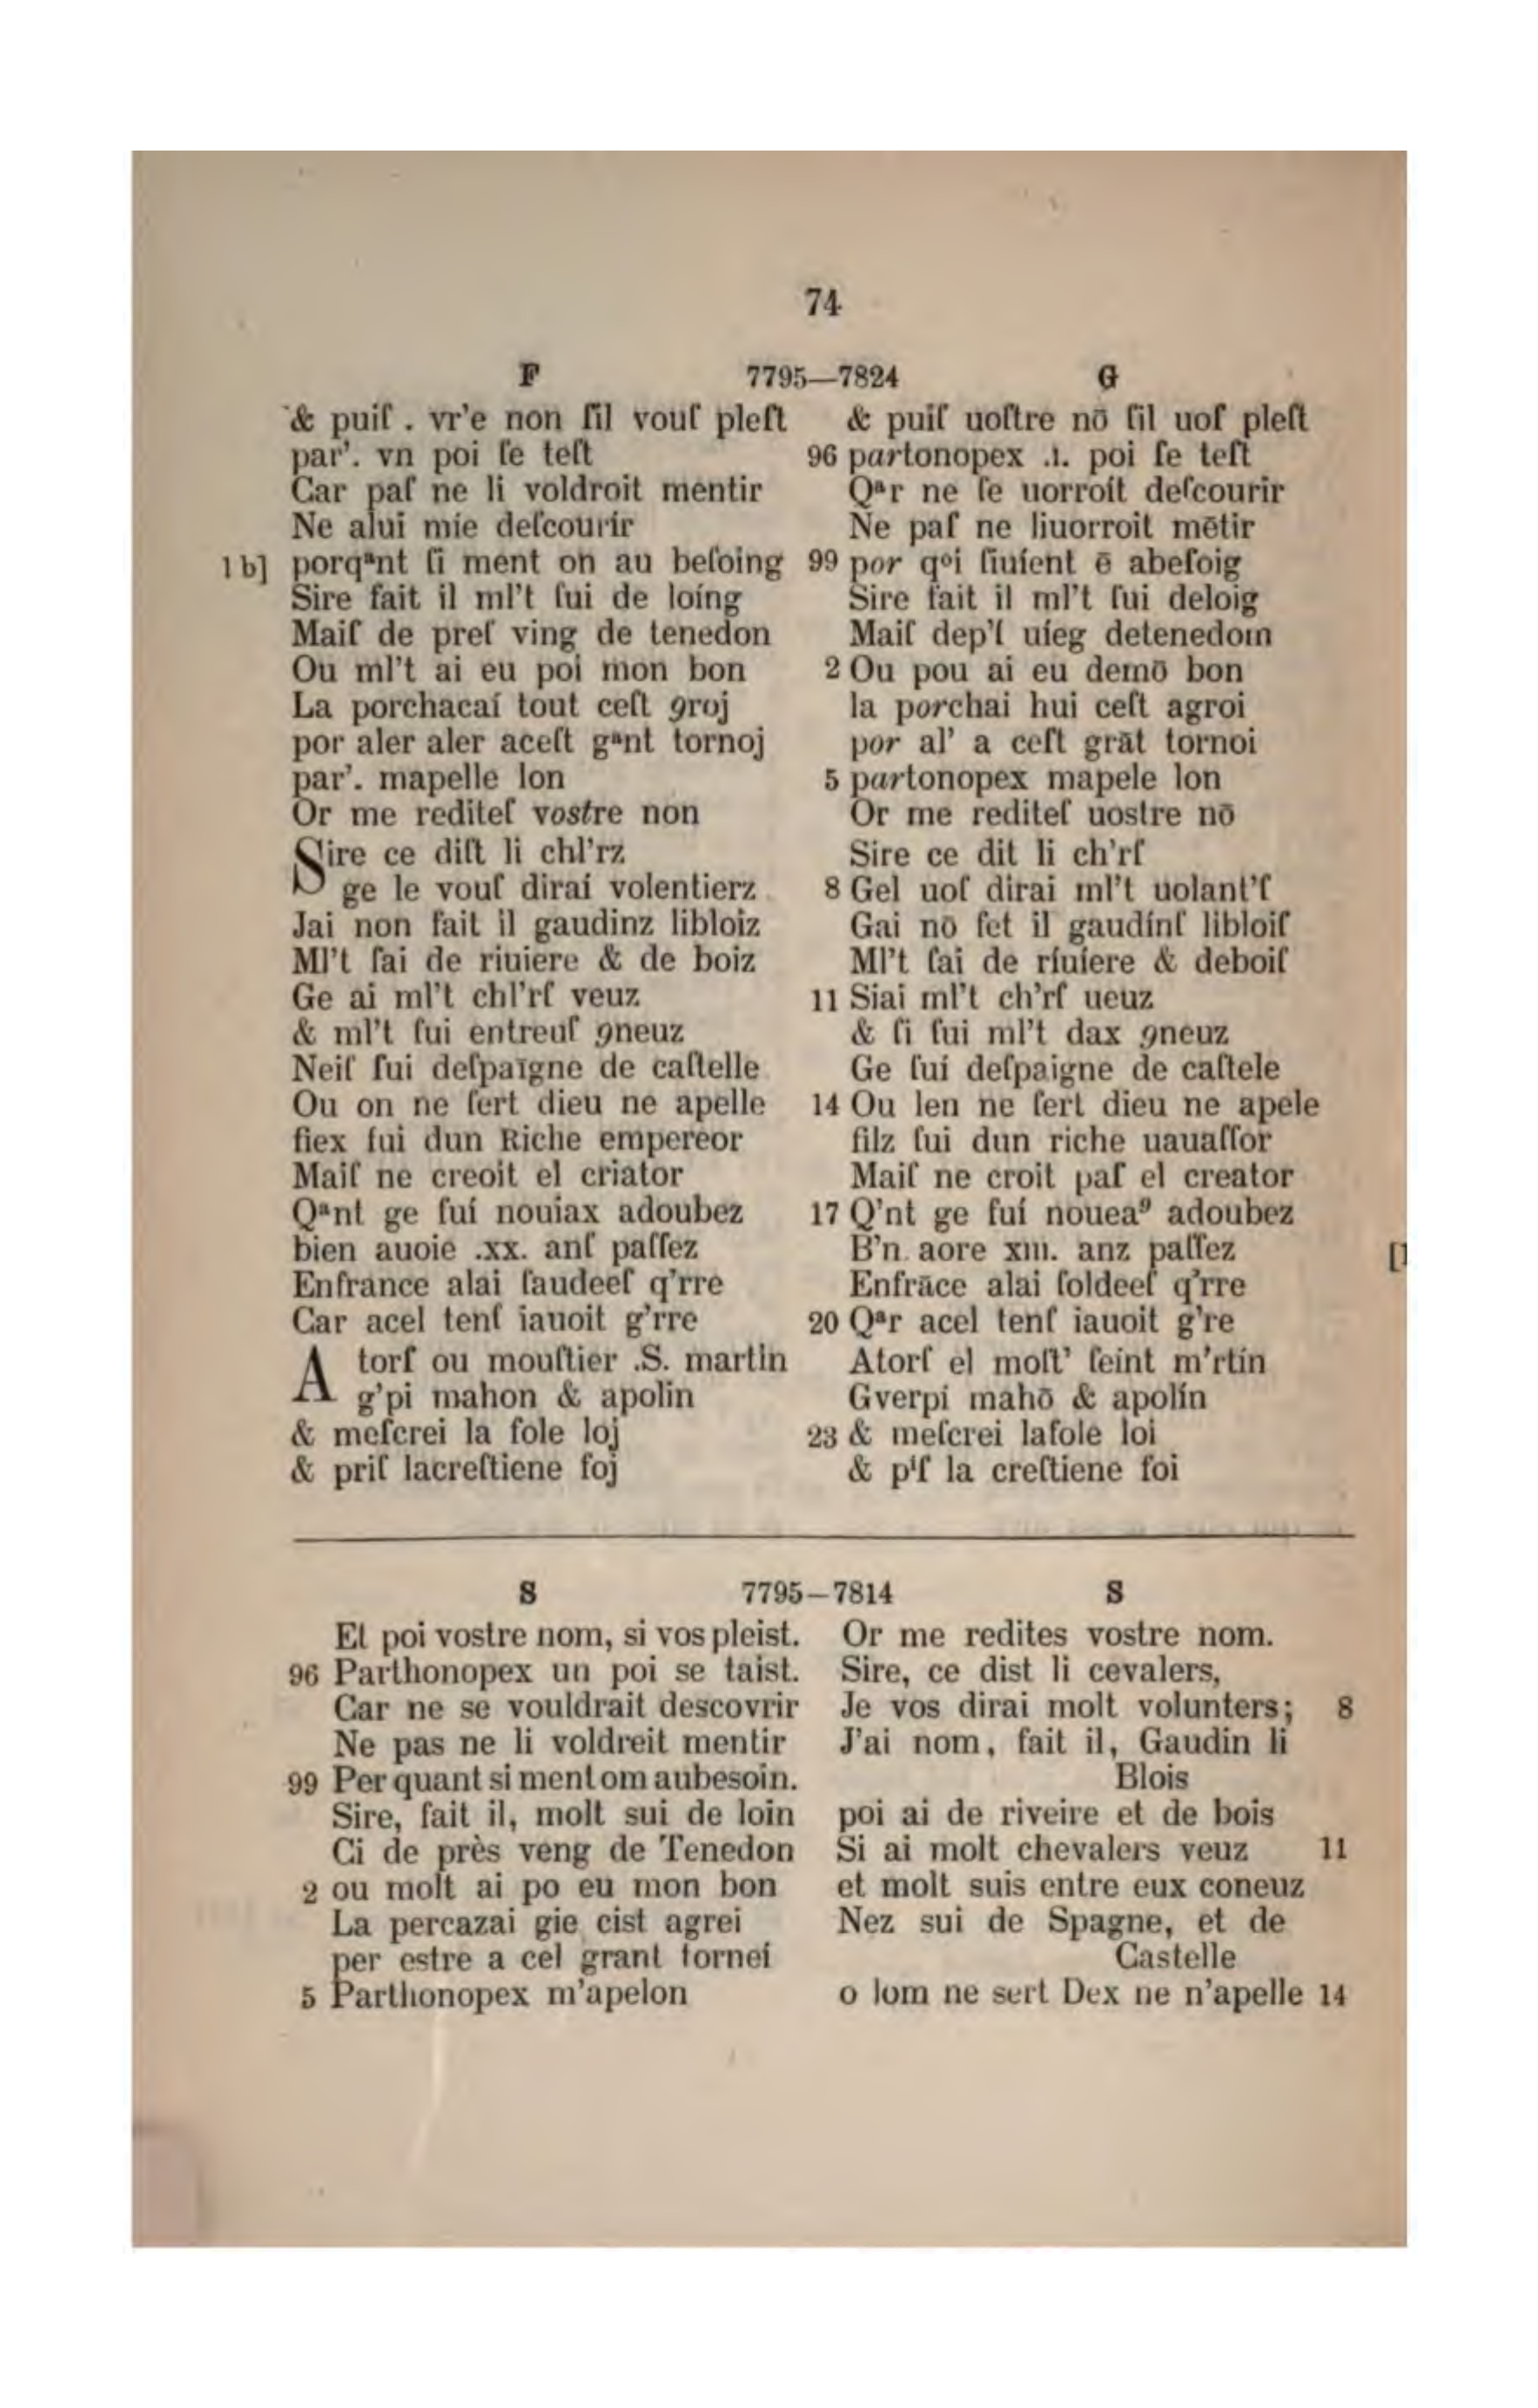 74
F 7795—7824 G
& puiſ . vr'e non ſil vouſ pleſt
par'. vn poi ſe teſt
Car paſ ne li voldroit mentir
Ne alui míe deſcourír
1 b] porqᵃnt ſi ment on au beſoing
Sire fait il ml't ſui de loíng
Maiſ de preſ ving de tenedon
Ou ml't ai eu poi mon bon
La porchacaí tout ceſt 9roj
por aler aler aceſt gᵃnt tornoj
par'. mapelle lon
Or me rediteſ vostre non
Sire ce diſt li chl'rz
ge le vouſ diraí volentierz
Jai non fait il gaudinz libloiz
Ml't ſai de riuiere & de boiz
Ge ai ml't chl'rſ veuz
& ml't ſui entreuſ 9neuz
Neiſ ſui deſpaīgne de caſtelle
Ou on ne ſert dieu ne apelle
fiex ſui dun Riche empereor
Maiſ ne creoit el criator
Qᵃnt ge fuí nouiax adoubez
bien auoie .xx. anſ paſſez
Enfrance alai ſaudeeſ q'rre
Car acel tenſ iauoit g'rre
A torſ ou mouſtier .S. martin
g'pi mahon & apolin
& meſcrei la fole loj
& priſ lacreſtiene foj
& puiſ uoſtre nō ſil uoſ pleſt
96 partonopex .ı. poi ſe teſt
Qᵃr ne ſe uorroít deſcourir
Ne paſ ne liuorroit mētir
99 por qᵒi ſiuíent ē abeſoig
Sire fait il ml't ſui deloig
Maiſ dep'ſ uíeg detenedom
2 Ou pou ai eu demō bon
la porchai hui ceſt agroi
por al' a ceſt grāt tornoi
5 partonopex mapele lon
Or me rediteſ uostre nō
Sire ce dit li ch'rſ
8 Gel uoſ dirai ml't uolant'ſ
Gai nō fet il gaudínſ libloiſ
Ml't ſai de ríuíere & deboiſ
11 Siai ml't ch'rſ ueuz
& ſi ſui ml't dax 9neuz
Ge ſuí deſpaigne de caſtele
14 Ou len ne ſert dieu ne apele
filz ſui dun riche uauaſſor
Maiſ ne croit paſ el creator
17 Q'nt ge fuí noueaꝰ adoubez
B'n aore xııı. anz paſſez
Enfrāce alai ſoldeeſ q'rre
20 Qᵃr acel tenſ iauoit g're
Atorſ el moſt' ſeint m'rtín
Gverpí mahō & apolín
23 & meſcrei lafole loi
& pⁱſ la creſtiene foi
S 7795—7814 S
Et poi vostre nom, si vos pleist.
96 Parthonopex un poi se taist.
Car ne se vouldrait descovrir
Ne pas ne li voldreit mentir
99 Per quant si ment om aubesoin.
Sire, fait il, molt sui de loin
Ci de près veng de Tenedon
2 ou molt ai po eu mon bon
La percazai gie cist agrei
per estre a cel grant torneí
5 Parthonopex m'apelon
Or me redites vostre nom.
Sire, ce dist li cevalers,
Je vos dirai molt volunters; 8
J'ai nom, fait il, Gaudin li
Blois
poi ai de riveire et de bois
Si ai molt chevalers veuz 11
et molt suis entre eux coneuz
Nez sui de Spagne, et de
Castelle
o lom ne sert Dex ne n'apelle 14